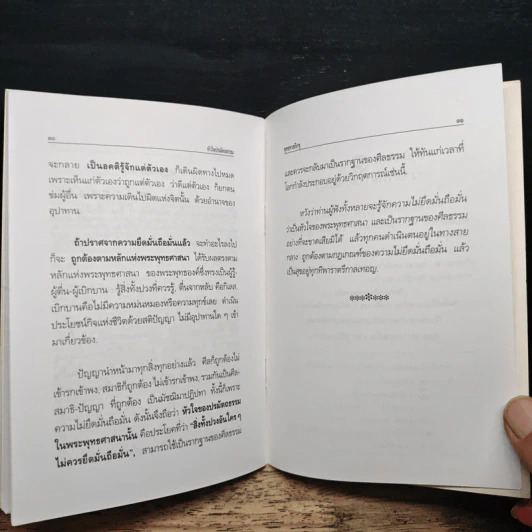 ๑๐
หัวใจปรมัตถธรรม
จะกลาย เป็นอคติรู้จักแต่ตัวเอง ก็เดินผิดทางไปหมด
เพราะเห็นแก่ตัวเองว่าถูกแต่ตัวเอง ว่าดีแต่ตัวเอง ก็ยกตน
ข่มผู้อื่น เพราะความเดินไปผิดแห่งจิตนั้น ด้วยอำนาจของ
อุปาทาน.
ถ้าปราศจากความยึดมั่นถือมั่นแล้ว จะทำอะไรลงไป
ก็จะ ถูกต้องตามหลักแห่งพระพุทธศาสนา ได้รับผลตรงตาม
หลักแห่งพระพุทธศาสนา ของพระพุทธองค์ซึ่งทรงเป็นผู้รู้-
ผู้ตื่น-ผู้เบิกบาน : รู้สิ่งทั้งปวงที่ควรรู้, ตื่นจากหลับ คือกิเลส,
เบิกบานคือไม่มีความหม่นหมองหรือความทุกข์เลย ดำเนิน
ประโยชน์กิจแห่งชีวิตด้วยสติปัญญา ไม่มีอุปาทานใด ๆ เข้า
มาเกี่ยวข้อง.
ปัญญานำหน้ามาทุกสิ่งทุกอย่างแล้ว ศีลก็ถูกต้อง ไม่
เข้ารกเข้าพง, สมาธิก็ถูกต้อง ไม่เข้ารกเข้าพง, รวมกันเป็นศีล-
สมาธิ-ปัญญา ที่ถูกต้อง เป็นมัชฌิมาปฏิปทา ทั้งนี้ก็เพราะ
ความไม่ยึดมั่นถือมั่น ดังนั้นจึงถือว่า หัวใจของปรมัตถธรรม
ในพระพุทธศาสนานั้น คือประโยคที่ว่า "สิ่งทั้งปวงอันใคร ๆ
ไม่ควรยึดมั่นถือมั่น", สามารถใช้เป็นรากฐานของศีลธรรม
๑๑
และควรจะกลับมาเป็นรากฐานของศีลธรรม ให้ทันแก่เวลาที่
โลกกำลังประกอบอยู่ด้วยวิกฤตการณ์เช่นนี้.
หวังว่าท่านผู้ฟังทั้งหลายจะรู้จักความไม่ยึดมั่นถือมั่น
ว่าเป็นหัวใจของพระพุทธศาสนา และเป็นรากฐานของศีลธรรม
อย่างที่จะขาดเสียมิได้ แล้วทุกคนดำเนินตนอยู่ในทางสาย
กลาง ถูกต้องตามกฎเกณฑ์ของความไม่ยึดมั่นถือมั่น แล้ว
เป็นสุขอยู่ทุกทิพาราตรีกาลเทอญ.